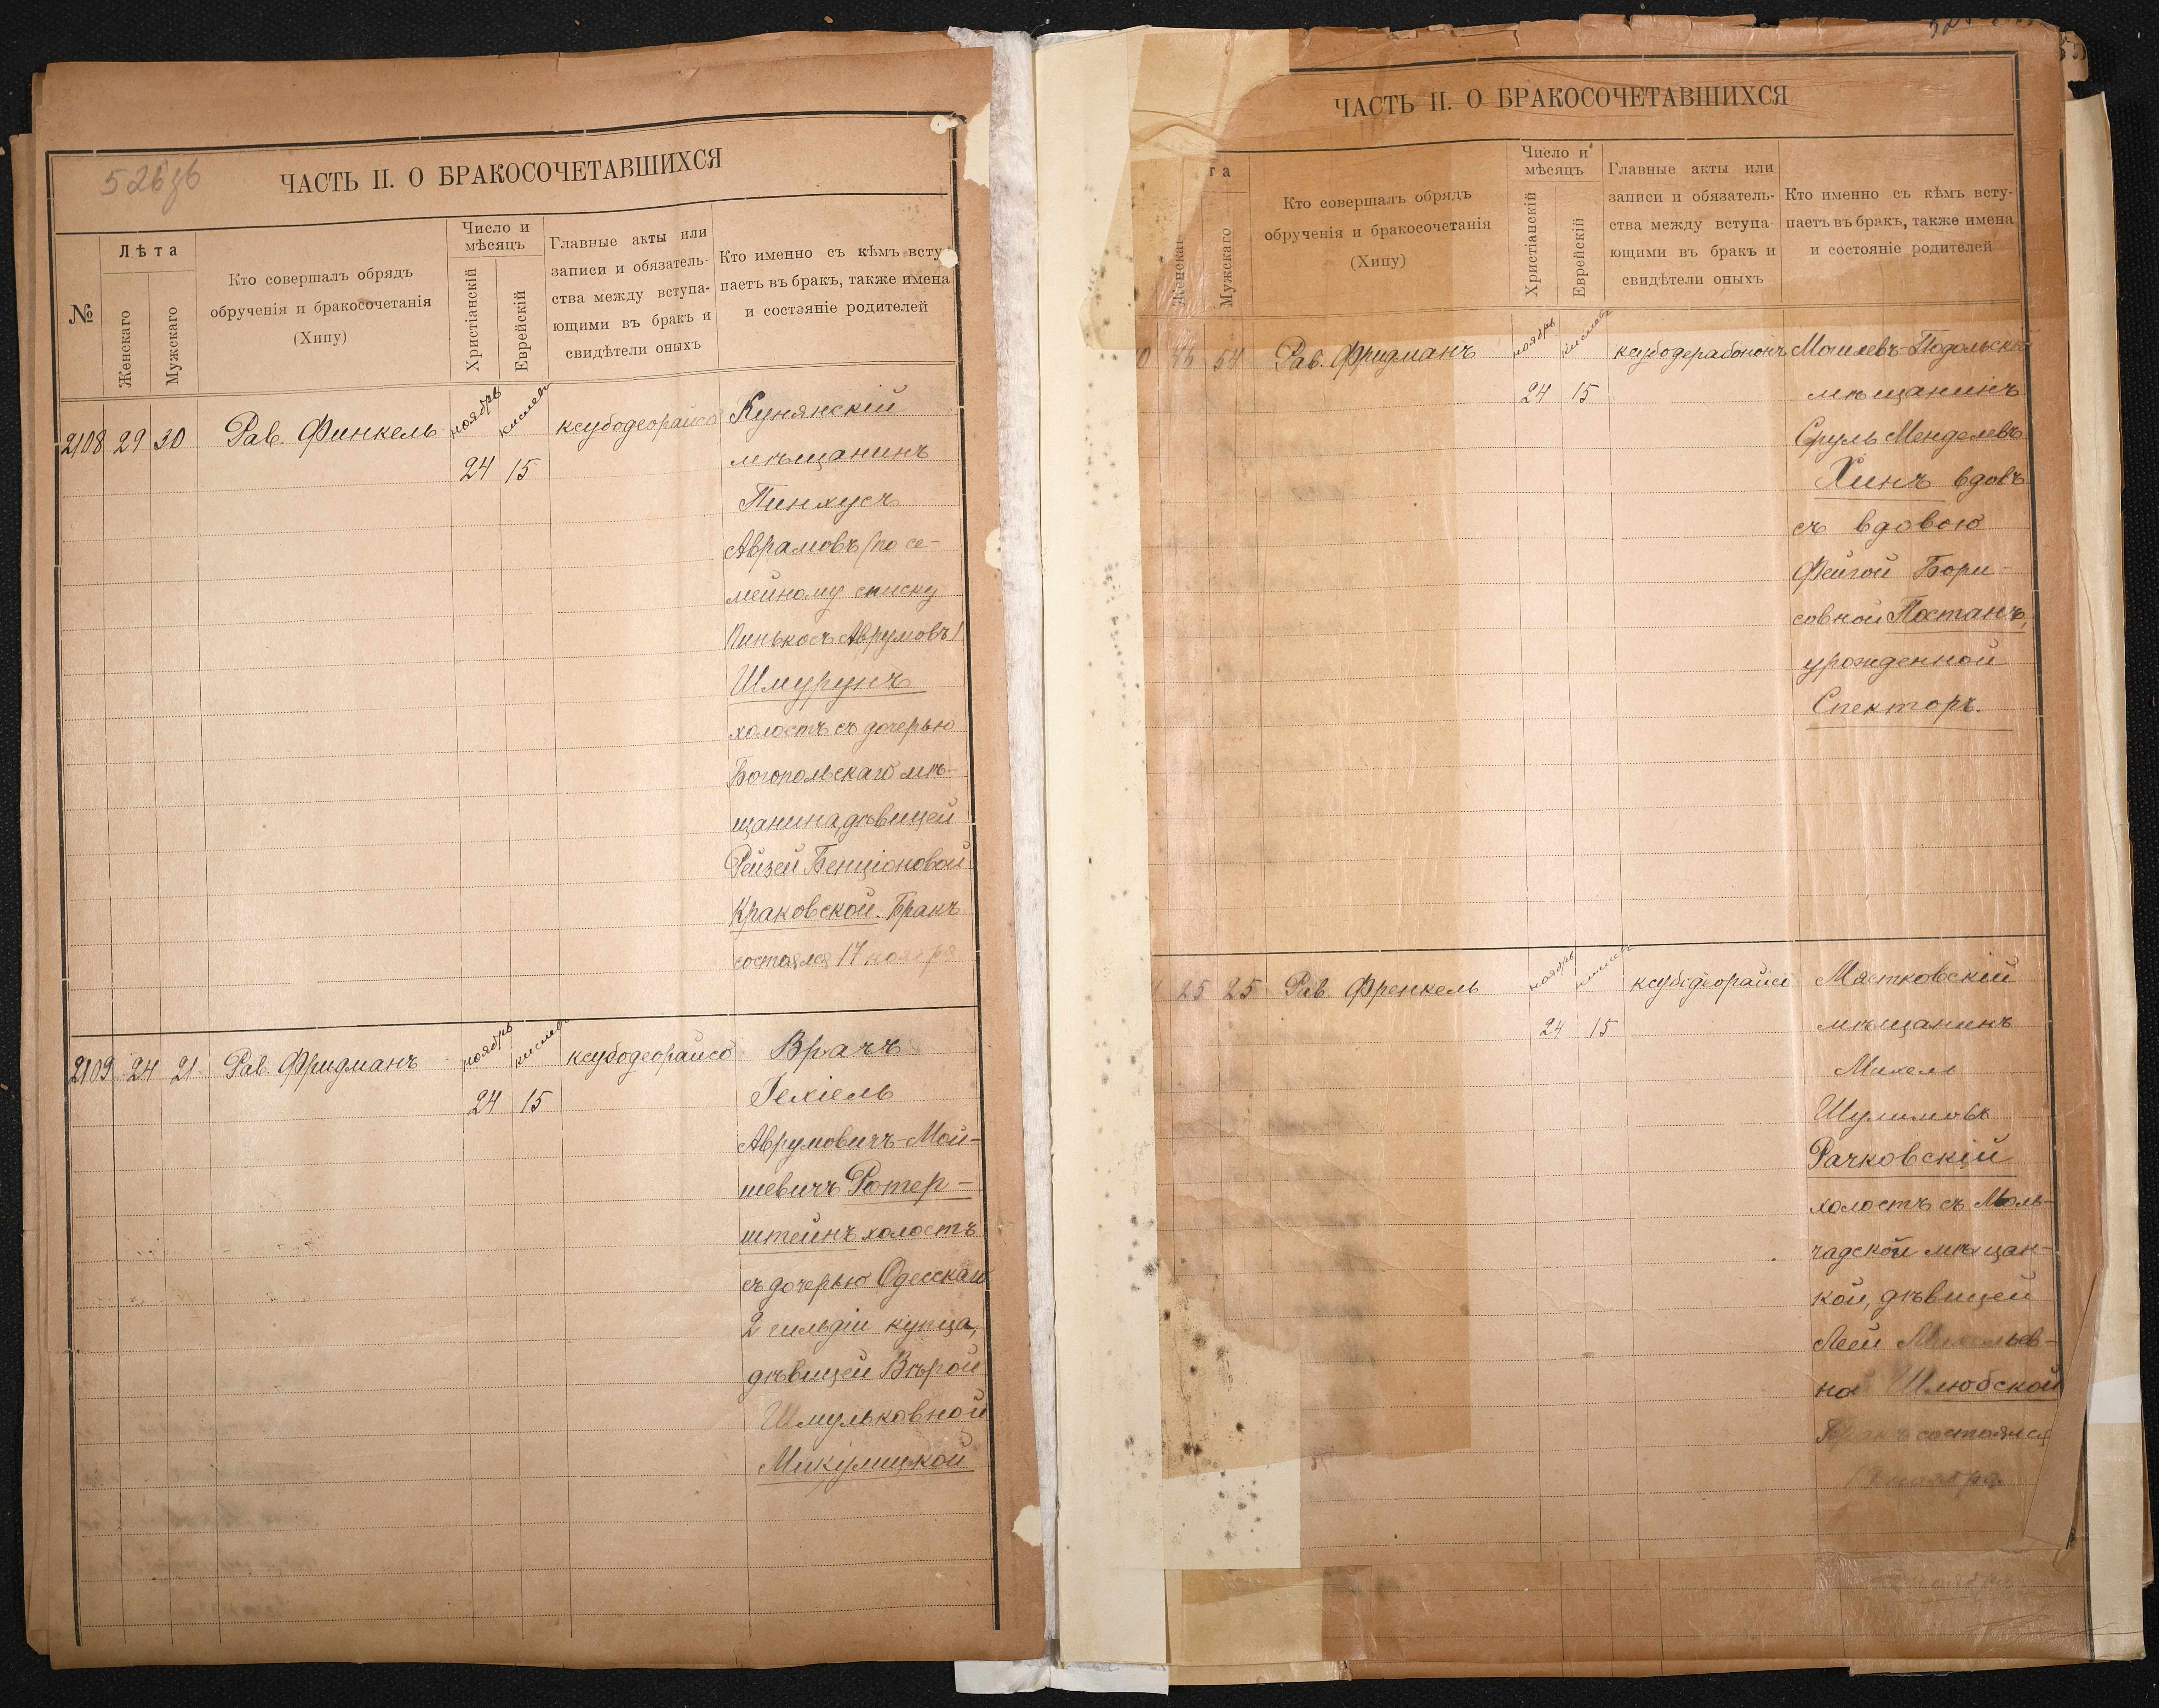 526 зв
ЧАСТЬ II. О БРАКОСОЧЕТАВШИХСЯ
№
Лѣта
Женскаго
Мужскаго
Кто совершалъ обрядъ
обрученія и бракосочетанія
(Хипу)
Число и
мѣсяцъ
Христіанскій
Еврейскій
Главные акты или
записи и обязатель-
ства между вступа-
ющими въ бракъ и
свидѣтели оныхъ
Кто именно съ кѣмъ всту-
паетъ въ бракъ, также имена
и состояніе родителей
2108 29 30 Рав. Финкель ноябрь кислевъ ксубодеорайсо Кунянскій
24 15 мѣщанинъ
Пинхусъ
Аврамовъ (по се-
мейному списку
Пинькосъ Аврумовъ)
Шмурунъ
холостъ съ дочерью
Богопольскаго мѣ-
щанина, дѣвицей
Рейзей Бенціоновой
Краковской. Бракъ
состоялся 17 ноября
2109 24 21 Рав. Фридманъ ноябрь кислевъ ксубодеорайсо Врачъ
24 15 Іехіель
Аврумовичъ-Мой-
шевичъ Ротер-
штейнъ холостъ
съ дочерью Одесскаго
2 гильдіи купца,
дѣвицей Вѣрой
Шмульковной
Микулицкой
ЧАСТЬ II. О БРАКОСОЧЕТАВШИХСЯ
та
Женскаг
Мужскаго
Кто совершалъ обрядъ
обрученія и бракосочетанія
(Хипу)
Число и
мѣсяцъ
Христіанскій
Еврейскій
Главные акты или
записи и обязатель-
ства между вступа-
ющими въ бракъ и
свидѣтели оныхъ
Кто именно съ кѣмъ всту-
паетъ въ бракъ, также имена
и состояніе родителей
0 55 54 Рав. Фридманъ ноябрь кислевъ ксубодерабононъ Могилевъ-Подольскій
24 15 мѣщанинъ
Сруль Менделевъ
Хинъ вдовъ
съ вдовою
Фейгой Бори-
совной Постанъ,
урожденной
Спекторъ.
25 25 Рав. Френкель ноябрь кислевъ ксубодеорайсо Мястковскій
24 15 мѣщанинъ
Михель
Шулимовъ
Рачковскій
холостъ съ Моль-
чадской мѣщан-
кой, дѣвицей
Леей
на Шлюбской
Бракъ состоялся
ноября